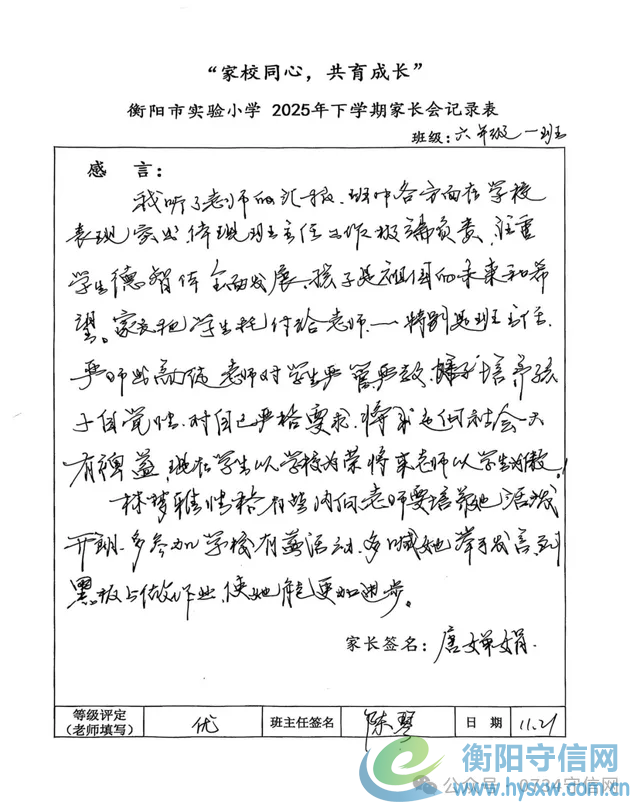 “家校同心，共育成长”
衡阳市实验小学 2025年下学期家长会记录表
班级：六年级一班
感 言：
我听了老师的汇报，班中各方面在学校
表现突出，体现班主任工作极端负责，注重
学生德智体全面发展，孩子是祖国的未来和希
望。家长把学生托付给老师——特别是班主任。
严师出高徒，老师对学生严管严教，培养孩
子自觉性，对自己严格要求，将来走向社会大
有裨益，现在学生以学校为荣将来老师以学生为傲！
林梦雅性格有些内向，老师要培养她活泼
开朗，多参加学校有益活动，多喊她举手发言，到
黑板上做作业，使她能更加进步。
家长签名：唐婵娟.
等级评定
（老师填写）
优
班主任签名
陈琴
日 期
11.21
衡阳守信网
公众号·0734守信网
www.hysxw.com